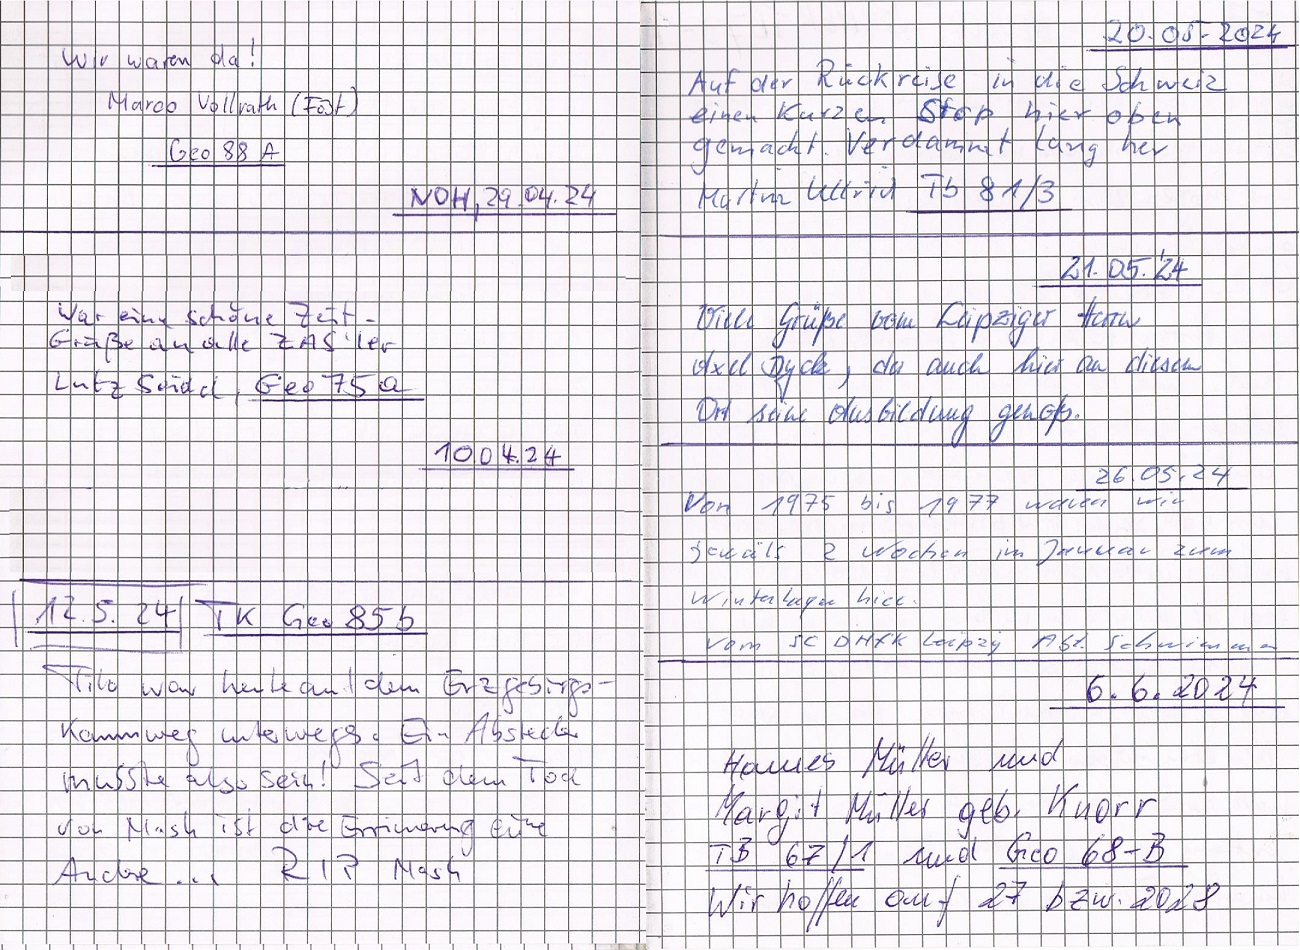 Wir waren da!
Marco Vollrath (Föst)
Geo 88 A
NOH, 29.04.24
War eine schöne Zeit -
Grüße an alle ZAS'ler
Lutz Seidel, Geo 75 a
10.04.24
12.5.24 TK Geo 85b
Tilo war heute auf dem Erzgebirgs-
kammweg unterwegs. Ein Abstecher
musste also sein! Seit dem Tod
von Mash ist die Erinnerung eine
Andere ... RIP Mash
20.05.2024
Auf der Rückreise in die Schweiz
einen Kurzen Stop hier oben
gemacht. Verdammt lang her
Martin Ullrich Tb 81/3
21.05.24
Viele Grüße vom Leipziger
Axel Dyck, der auch hier an diesem
Ort seine Ausbildung genoß.
26.05.24
Von 1975 bis 1977 waren wir
jeweils 2 Wochen im Januar zum
Winterlager hier.
vom SC DHfK Leipzig Abt. Schwimmen
6.6.2024
Hannes Müller und
Margit Müller geb. Knorr
TB 67/1 und Geo 68-B
Wir hoffen auf 27 bzw. 2028